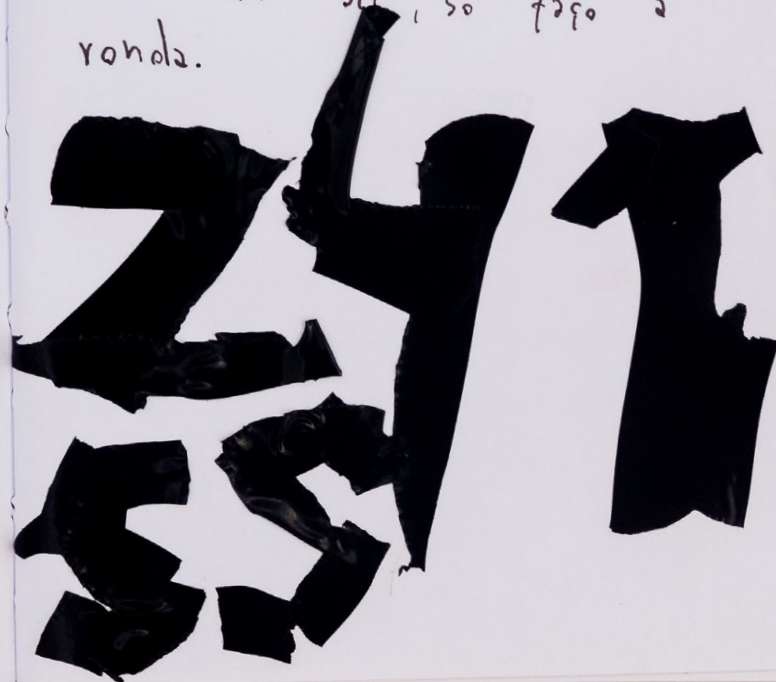 , só faço a
ronda.
241
SS